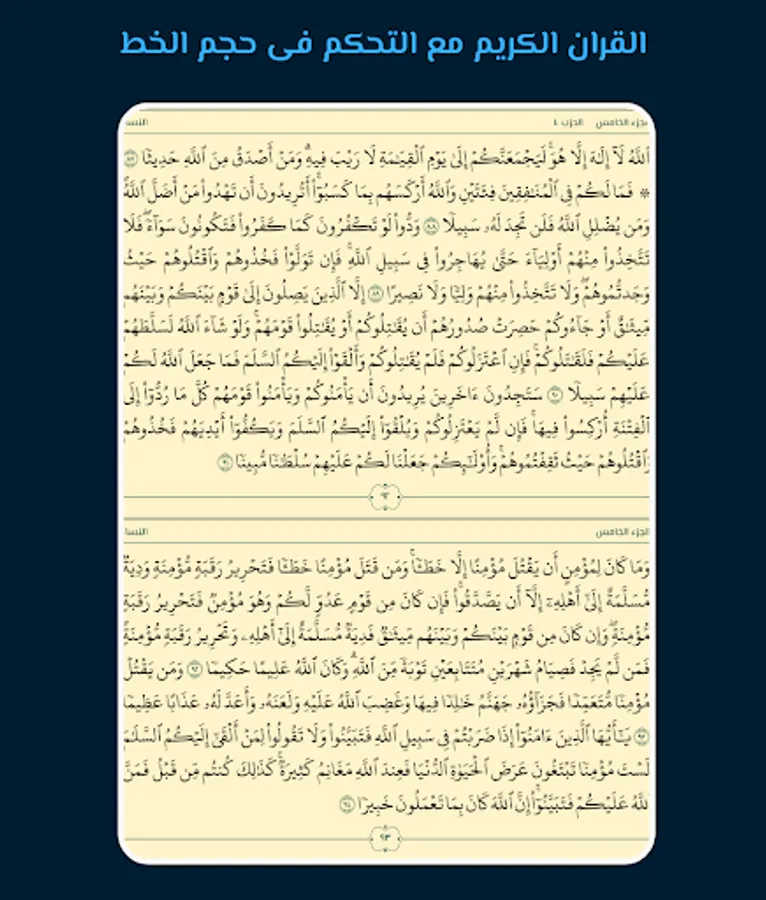 القران الكريم مع التحكم فى حجم الخط
الجزء الخامس الحزب ١٠ النسا
ٱللَّهُ لَآ إِلَٰهَ إِلَّا هُوَۚ لَيَجْمَعَنَّكُمْ إِلَىٰ يَوْمِ ٱلْقِيَٰمَةِ لَا رَيْبَ فِيهِۗ وَمَنْ أَصْدَقُ مِنَ ٱللَّهِ حَدِيثًا ٨٧
۞ فَمَا لَكُمْ فِى ٱلْمُنَٰفِقِينَ فِئَتَيْنِ وَٱللَّهُ أَرْكَسَهُم بِمَا كَسَبُوٓا۟ۚ أَتُرِيدُونَ أَن تَهْدُوا۟ مَنْ أَضَلَّ ٱللَّهُۖ
وَمَن يُضْلِلِ ٱللَّهُ فَلَن تَجِدَ لَهُۥ سَبِيلًا ٨٨ وَدُّوا۟ لَوْ تَكْفُرُونَ كَمَا كَفَرُوا۟ فَتَكُونُونَ سَوَآءًۖ فَلَا
تَتَّخِذُوا۟ مِنْهُمْ أَوْلِيَآءَ حَتَّىٰ يُهَاجِرُوا۟ فِى سَبِيلِ ٱللَّهِۚ فَإِن تَوَلَّوْا۟ فَخُذُوهُمْ وَٱقْتُلُوهُمْ حَيْثُ
وَجَدتُّمُوهُمْۖ وَلَا تَتَّخِذُوا۟ مِنْهُمْ وَلِيًّا وَلَا نَصِيرًا ٨٩ إِلَّا ٱلَّذِينَ يَصِلُونَ إِلَىٰ قَوْمٍۭ بَيْنَكُمْ وَبَيْنَهُم
مِّيثَٰقٌ أَوْ جَآءُوكُمْ حَصِرَتْ صُدُورُهُمْ أَن يُقَٰتِلُوكُمْ أَوْ يُقَٰتِلُوا۟ قَوْمَهُمْۚ وَلَوْ شَآءَ ٱللَّهُ لَسَلَّطَهُمْ
عَلَيْكُمْ فَلَقَٰتَلُوكُمْۚ فَإِنِ ٱعْتَزَلُوكُمْ فَلَمْ يُقَٰتِلُوكُمْ وَأَلْقَوْا۟ إِلَيْكُمُ ٱلسَّلَمَ فَمَا جَعَلَ ٱللَّهُ لَكُمْ
عَلَيْهِمْ سَبِيلًا ٩٠ سَتَجِدُونَ ءَاخَرِينَ يُرِيدُونَ أَن يَأْمَنُوكُمْ وَيَأْمَنُوا۟ قَوْمَهُمْ كُلَّ مَا رُدُّوٓا۟ إِلَى
ٱلْفِتْنَةِ أُرْكِسُوا۟ فِيهَاۚ فَإِن لَّمْ يَعْتَزِلُوكُمْ وَيُلْقُوٓا۟ إِلَيْكُمُ ٱلسَّلَمَ وَيَكُفُّوٓا۟ أَيْدِيَهُمْ فَخُذُوهُمْ
وَٱقْتُلُوهُمْ حَيْثُ ثَقِفْتُمُوهُمْۚ وَأُو۟لَٰٓئِكُمْ جَعَلْنَا لَكُمْ عَلَيْهِمْ سُلْطَٰنًا مُّبِينًا ٩١
٩٢
الجزء الخامس النسا
وَمَا كَانَ لِمُؤْمِنٍ أَن يَقْتُلَ مُؤْمِنًا إِلَّا خَطَـًٔاۚ وَمَن قَتَلَ مُؤْمِنًا خَطَـًٔا فَتَحْرِيرُ رَقَبَةٍ مُّؤْمِنَةٍ وَدِيَةٌ
مُّسَلَّمَةٌ إِلَىٰٓ أَهْلِهِۦٓ إِلَّآ أَن يَصَّدَّقُوا۟ۚ فَإِن كَانَ مِن قَوْمٍ عَدُوٍّ لَّكُمْ وَهُوَ مُؤْمِنٌ فَتَحْرِيرُ رَقَبَةٍ
مُّؤْمِنَةٍۖ وَإِن كَانَ مِن قَوْمٍۭ بَيْنَكُمْ وَبَيْنَهُم مِّيثَٰقٌ فَدِيَةٌ مُّسَلَّمَةٌ إِلَىٰٓ أَهْلِهِۦ وَتَحْرِيرُ رَقَبَةٍ مُّؤْمِنَةٍۖ
فَمَن لَّمْ يَجِدْ فَصِيَامُ شَهْرَيْنِ مُتَتَابِعَيْنِ تَوْبَةً مِّنَ ٱللَّهِۗ وَكَانَ ٱللَّهُ عَلِيمًا حَكِيمًا ٩٢ وَمَن يَقْتُلْ
مُؤْمِنًا مُّتَعَمِّدًا فَجَزَآؤُهُۥ جَهَنَّمُ خَٰلِدًا فِيهَا وَغَضِبَ ٱللَّهُ عَلَيْهِ وَلَعَنَهُۥ وَأَعَدَّ لَهُۥ عَذَابًا عَظِيمًا
٩٣ يَٰٓأَيُّهَا ٱلَّذِينَ ءَامَنُوٓا۟ إِذَا ضَرَبْتُمْ فِى سَبِيلِ ٱللَّهِ فَتَبَيَّنُوا۟ وَلَا تَقُولُوا۟ لِمَنْ أَلْقَىٰٓ إِلَيْكُمُ ٱلسَّلَٰمَ
لَسْتَ مُؤْمِنًا تَبْتَغُونَ عَرَضَ ٱلْحَيَوٰةِ ٱلدُّنْيَا فَعِندَ ٱللَّهِ مَغَانِمُ كَثِيرَةٌۚ كَذَٰلِكَ كُنتُم مِّن قَبْلُ فَمَنَّ
ٱللَّهُ عَلَيْكُمْ فَتَبَيَّنُوٓا۟ۚ إِنَّ ٱللَّهَ كَانَ بِمَا تَعْمَلُونَ خَبِيرًا ٩٤
٩٣